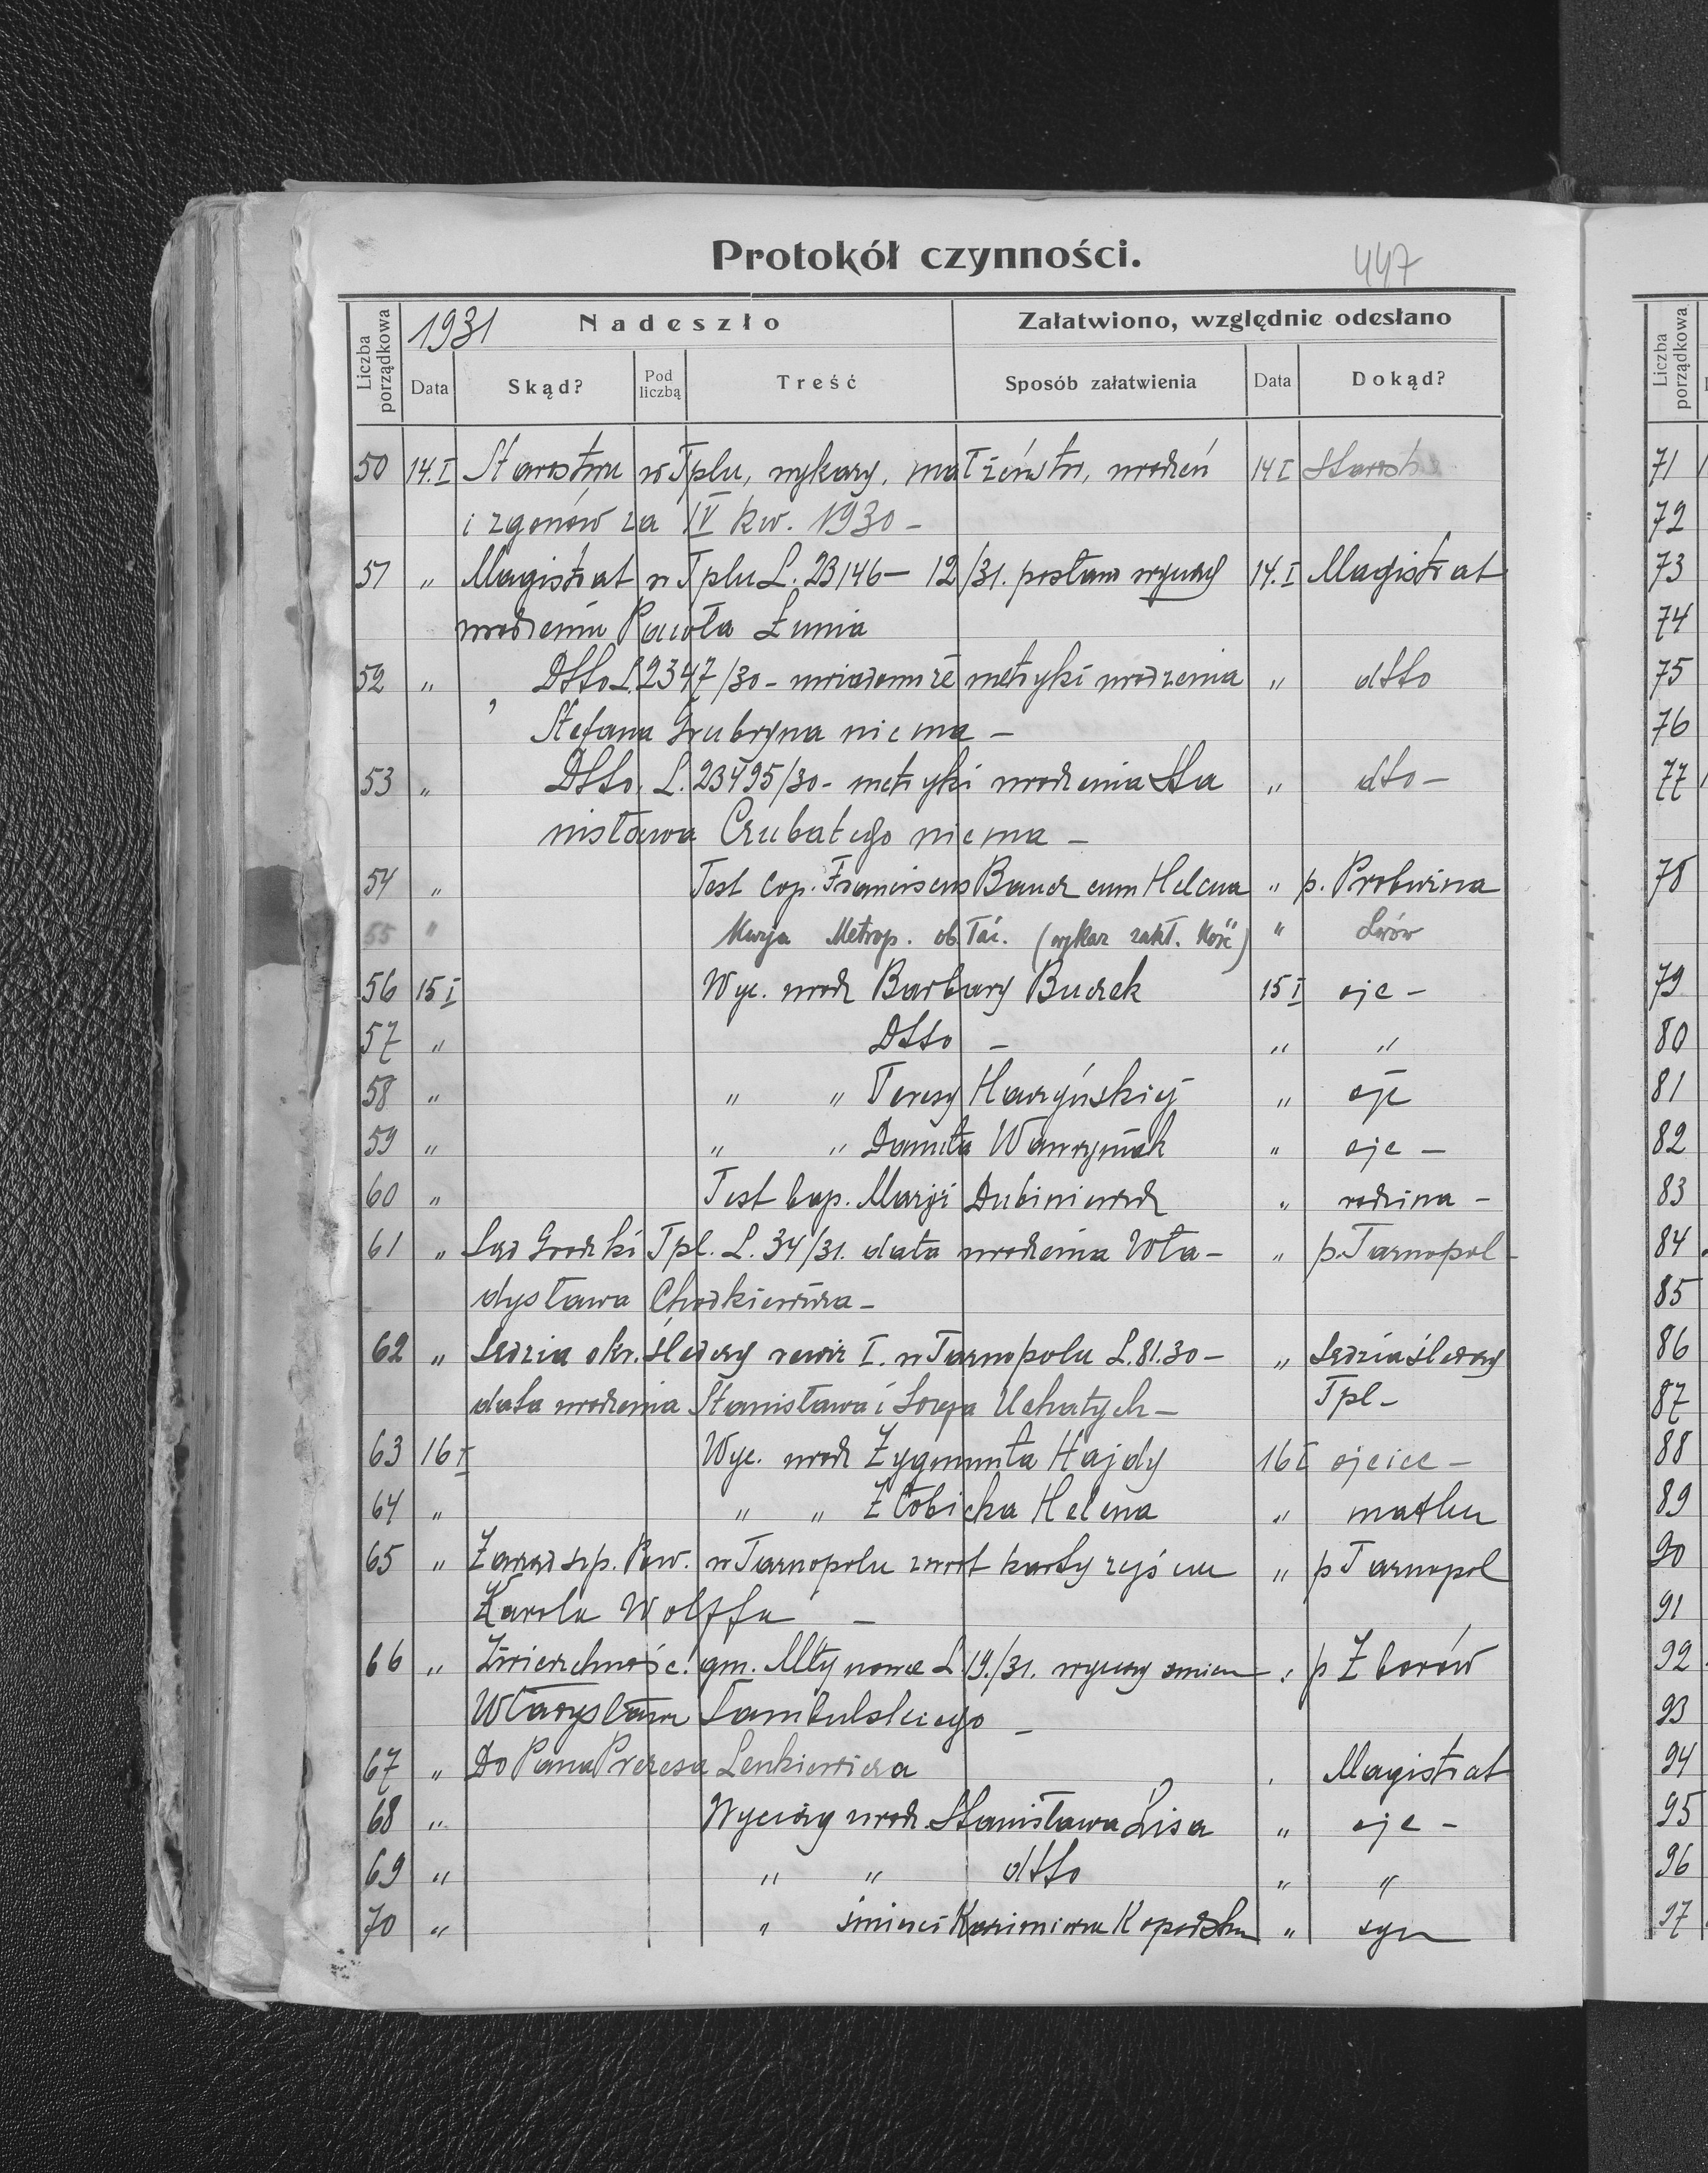 Protokół czynności.
447
Liczba porządkowa
1931
Nadeszło
Załatwiono, względnie odesłano
Data
Skąd?
Pod liczbą
Treść
Sposób załatwienia
Data
Dokąd?
50 14.I Starostwu w Tplu, wykazy, małżeństw, urodzeń 14 I Starostwo
i zgonów za IV kw. 1930 –
51 " Magistrat w Tplu L. 23146 – 12/31. posłano wyciąg 14.I Magistrat
urodzenia Pawła Łunia
52 " Dtto L. 2347/30 – uwiadom. że metryki urodzenia " dtto
Stefana Grubryna niema –
53 " Dtto. L. 23495/30 – metryki urodzenia Sta " dto –
nisława Czubatego niema –
54 " Test cop. Franciscus cum Helena " p.
55 " Kurja Metrop. ob. łać. (wykaz zakł. Kość) " Lwów
56 15 I Wyc. urodz Barbary Buczek 15 I ojc –
57 " Dtto – " "
58 " " " Teresy " ojc
59 " " " Danuta Wawryniak " ojc –
60 " Test bap. Marji " rodzina –
61 " Sąd Grodzki Tpl. L. 34/31. data urodzenia Wła – " p. Tarnopol –
dysława Chodkiewicza –
62 " Sędzia okr. śledczy rewir I. w Tarnopolu L. 81.30 – " Sędzia śledczy
data urodzenia Stanisława i Uchatych – Tpl –
63 16 I Wyc. urodz Zygmunta Hajdy 16 I ojciec –
64 " " " Żłobicka Helena " matka
65 " Zarząd szp. Pow. w Tarnopolu zwrot karty zejścia " p Tarnopol
Karola Wolffa –
66 " Zwierzchność gm. Młynowce L 19./31. wyciąg śmierci " p Zborów
Władysława Sambulskiego –
67 " Do Pana Prezesa Lenkiewicza . Magistrat
68 " Wyciąg urodz. Stanisława Lisa " ojc –
69 " " " dtto " "
70 " " śmierci Kazimierza " syn
Liczba porządkowa
71
72
73
74
75
76
77
78
79
80
81
82
83
84
85
86
87
88
89
90
91
92
93
94
95
96
97